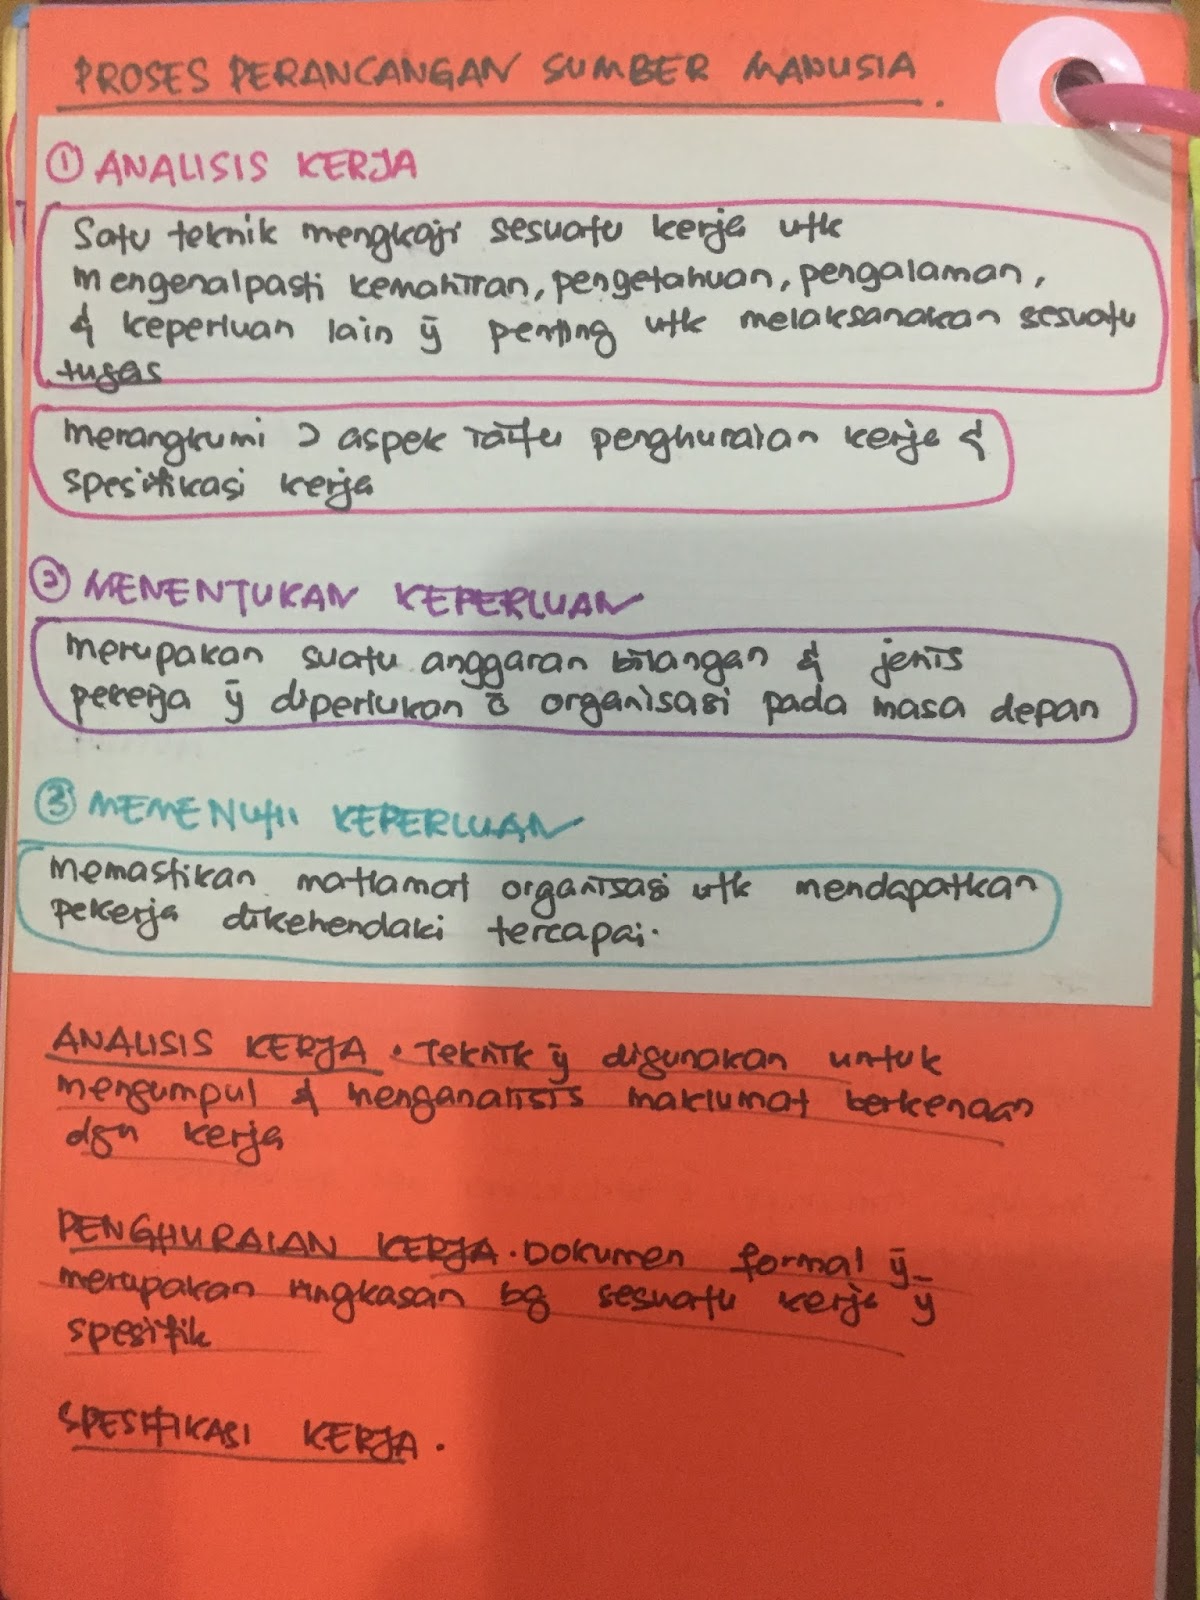 PROSES PERANCANGAN SUMBER MANUSIA.
① ANALISIS KERJA
Satu teknik mengkaji sesuatu kerja utk
mengenalpasti kemahiran, pengetahuan, pengalaman,
& keperluan lain ȳ penting utk melaksanakan sesuatu
tugas
merangkumi 2 aspek iaitu penghuraian kerja &
spesifikasi kerja
② MENENTUKAN KEPERLUAN
merupakan suatu anggaran bilangan & jenis
pekerja ȳ diperlukan ō organisasi pada masa depan
③ MEMENUHI KEPERLUAN
memastikan matlamat organisasi utk mendapatkan
pekerja dikehendaki tercapai.
ANALISIS KERJA. Teknik ȳ digunakan untuk
mengumpul & menganalisis maklumat berkenaan
dgn kerja
PENGHURAIAN KERJA. Dokumen formal ȳ
merupakan ringkasan bg sesuatu kerja y
spesifik
SPESIFIKASI KERJA.